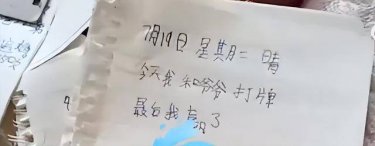 7月19日 星期二 晴
今天我和爷爷打牌
最白我赢了